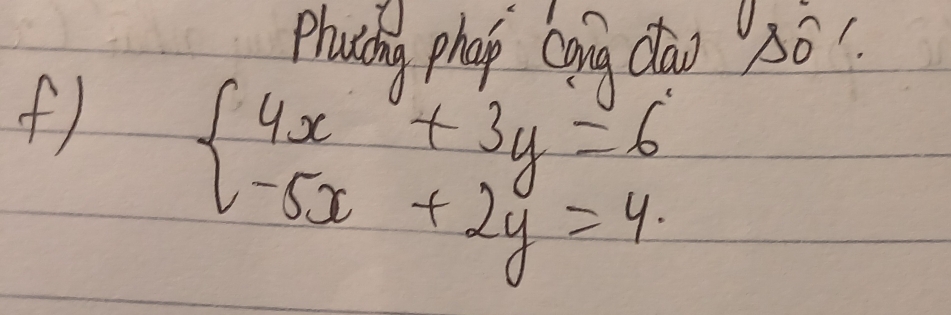 Phương pháp cộng đại số:
f) { 4x + 3y = 6
-5x + 2y = 4.